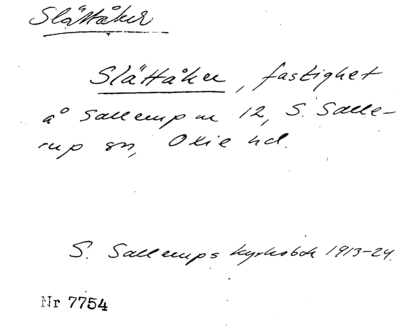 Slättåker
Slättåker, fastighet
å Sallerup nr 12, S. Salle-
rup sn, Oxie hd.
S. Sallerups kyrkobok 1913-24.
Nr 7754